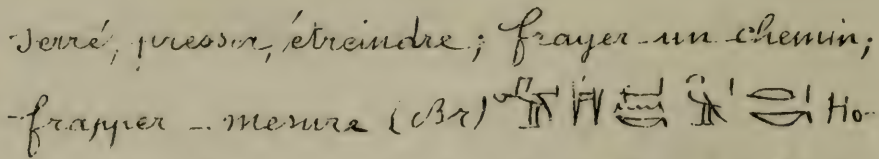 serré, presser, étreindre; frayer un chemin;
frapper - mesure (Br) Ho-